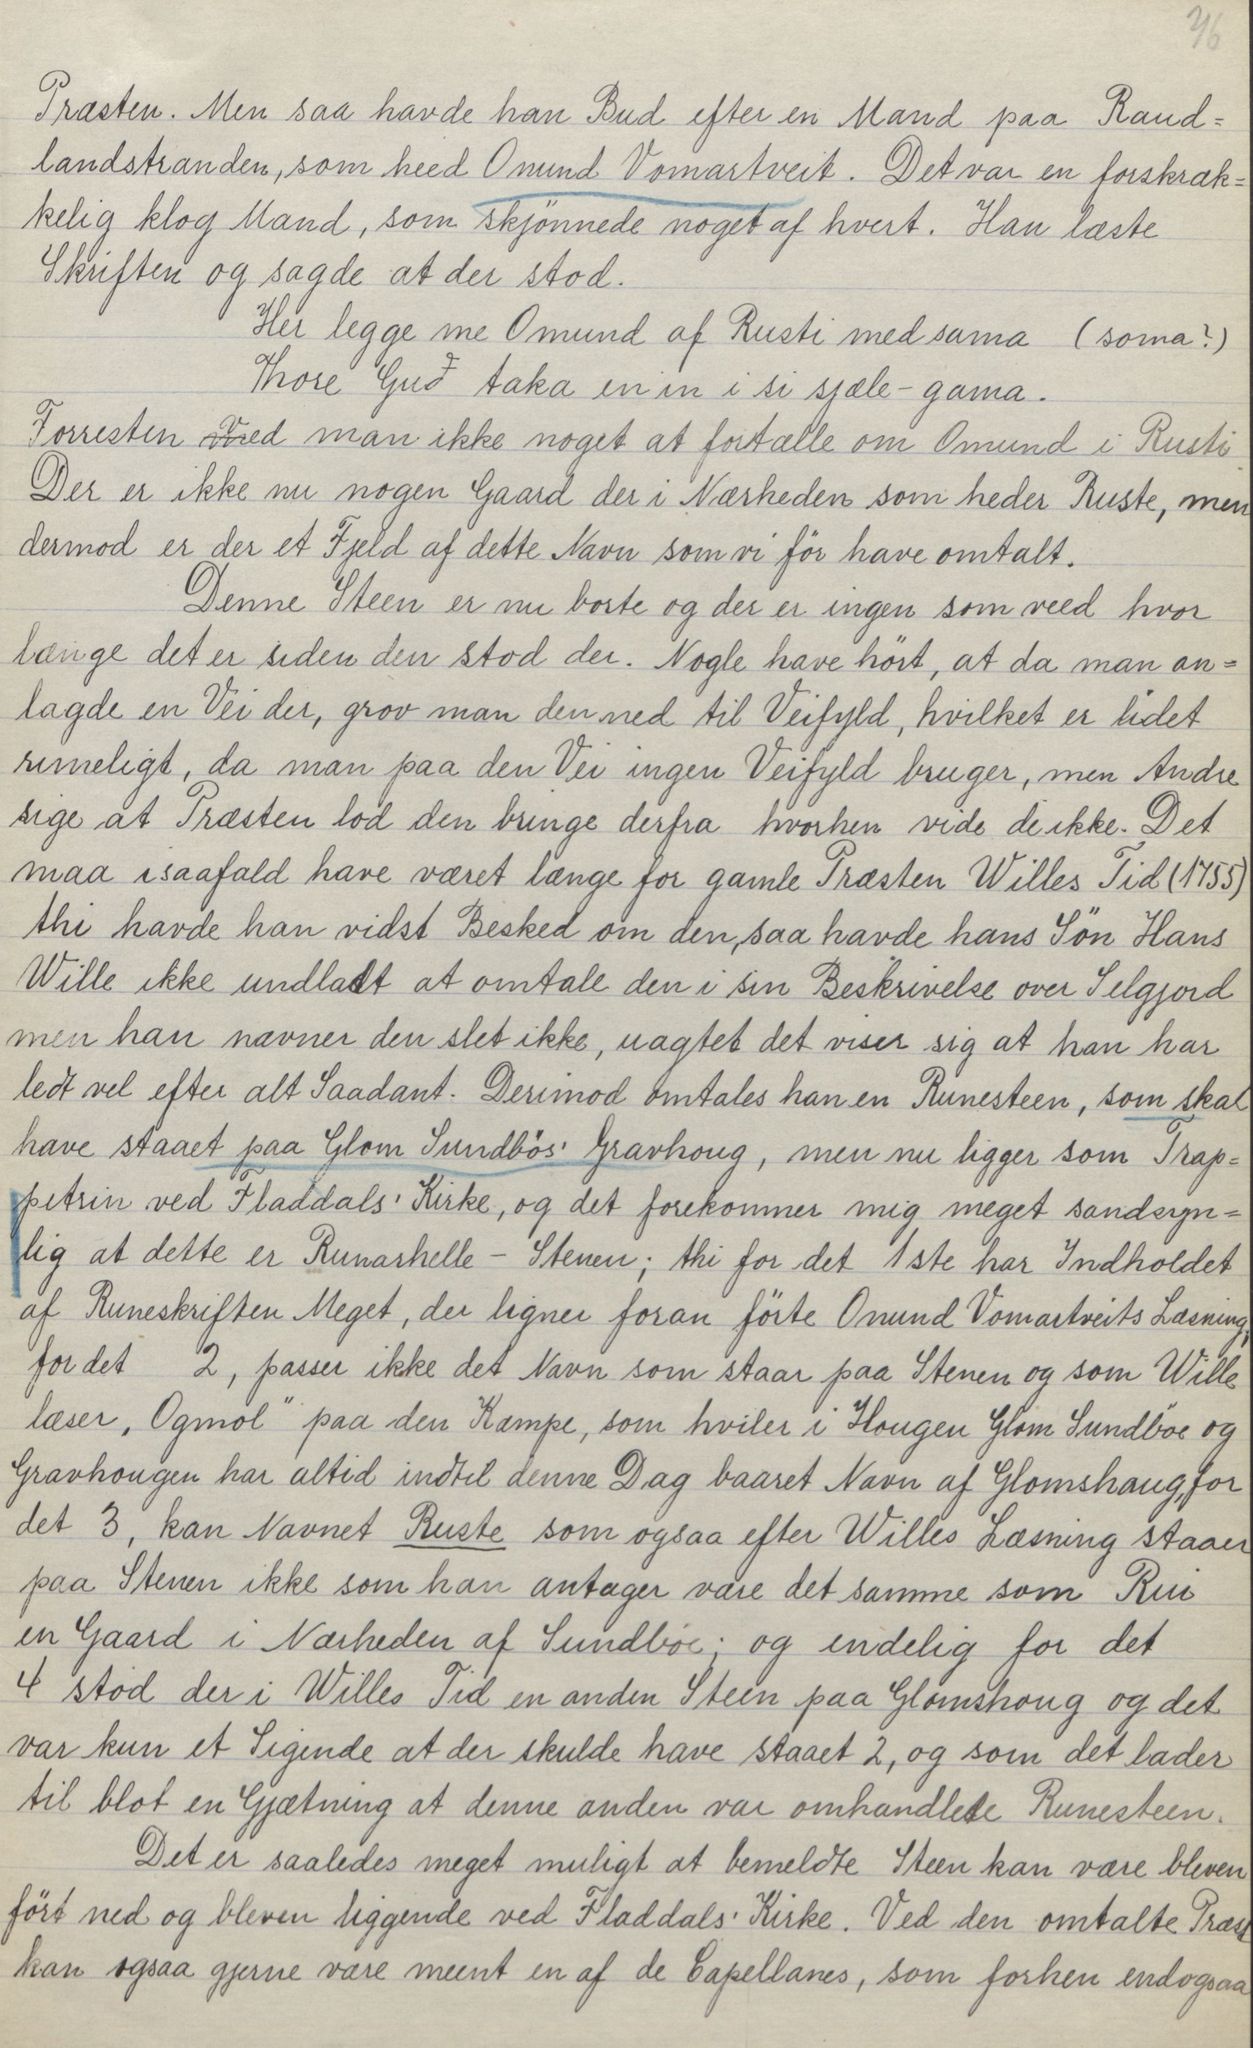 76
Præsten. Men saa havde han Bud efter en Mand paa Raud=
landstranden, som heed Onund Vomartveit. Det var en forskræk=
kelig klog Mand, som skjönnede noget af hvert. Han læste
Skriften og sagde at der stod.
Her legge me Omund af Rusti med sama (soma?)
Thore Gud taka en in i si sjæle-gama.
Forresten ved man ikke noget at fortælle om Omund i Rusti
Der er ikke nu nogen Gaard der i Nærheden som heder Ruste, men
dermod er der et Fjeld af dette Navn som vi för have omtalt.
Denne Steen er nu borte og der er ingen som veed hvor
længe det er siden den stod der. Nogle have hört, at da man an=
lagde en Vei der, grov man den ned til Veifyld, hvilket er lidet
rimeligt, da man paa den Vei ingen Veifyld bruger, men Andre
sige at Præsten lod den bringe derfra hvorhen vide de ikke. Det
maa isaafald have været længe for gamle Præsten Willes Tid (1755)
thi havde han vidst Besked om den, saa havde hans Sön Hans
Wille ikke undladt at omtale den i sin Beskrivelse over Selgjord
men han nævner den slet ikke, uagtet det viser sig at han har
ledt vel efter alt Saadant. Derimod omtales han en Runesteen, som skal
have staaet paa Glom Sundbös' Gravhoug, men nu ligger som Trap=
petrin ved Fladdals' Kirke, og det forekommer mig meget sandsyn=
lig at dette er Runarhelle - Stenen; thi for det 1ste har Indholdet
af Runeskriften Meget, der ligner foran förte Onund Vomartveits Læsning,
for det 2, passer ikke det Navn som staar paa Stenen og som Wille
læser, Ogmol" paa den Kæmpe, som hviler i Hougen Glom Sundböe og
Gravhougen har altid indtil denne Dag baaret Navn af Glomshaug, for
det 3, kan Navnet Ruste som ogsaa efter Willes Læsning staaer
paa Stenen ikke som han antager være det samme som Rui
en Gaard i Nærheden af Sundböe; og endelig for det
4 stod der i Willes Tid en anden Steen paa Glomshoug og det
var kun et Sigende at der skulde have staaet 2, og som det lader
til blot en Gjætning at denne anden var omhandlete Runesteen.
Det er saaledes meget muligt at bemeldte Steen kan være bleven
fört ned og bleven liggende ved Fladdals' Kirke. Ved den omtalte Præst
kan ogsaa gjerne være meent en af de Capellanes, som forhen endogsaa